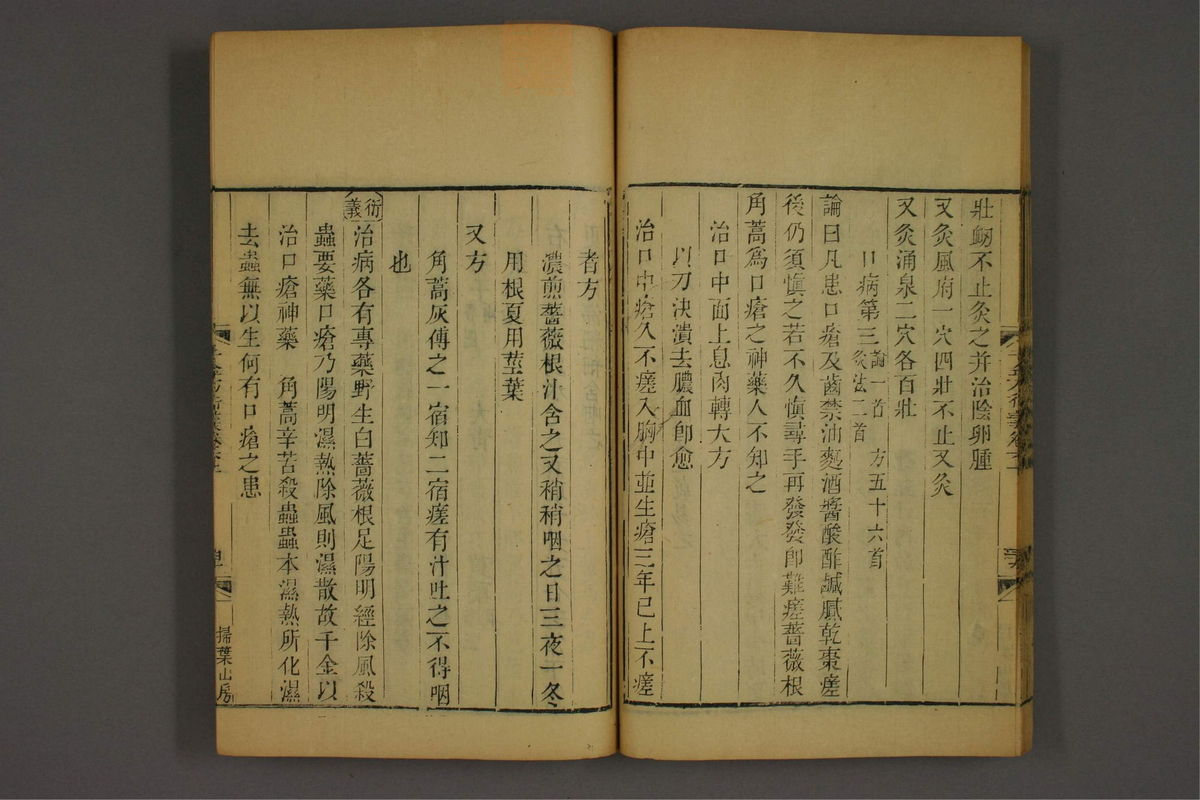 壯衂不止灸之并治陰卵腫
又灸風府一穴四壯不止又灸
又灸涌泉二穴各百壯
口病第三論一首 方五十六首 灸法二首
論曰凡患口瘡及齒禁油麪酒醬酸酢鹹膩乾棗瘥
後仍須慎之若不久慎尋手再發發卽難瘥薔薇根
角蒿爲口瘡之神藥人不知之
治口中面上息肉轉大方
以刀決潰去膿血卽愈
治口中瘡久不瘥入胸中並生瘡三年已上不瘥
者方
濃煎薔薇根汁含之又稍稍咽之日三夜一冬
用根夏用莖葉
又方
角蒿灰傅之一宿知二宿瘥有汁吐之不得咽
也
衍義
治病各有專藥野生白薔薇根足陽明經除風殺
蟲要藥口瘡乃陽明濕熱除風則濕散故千金以
治口瘡神藥 角蒿辛苦殺蟲蟲本濕熱所化濕
去蟲無以生何有口瘡之患
掃葉山房